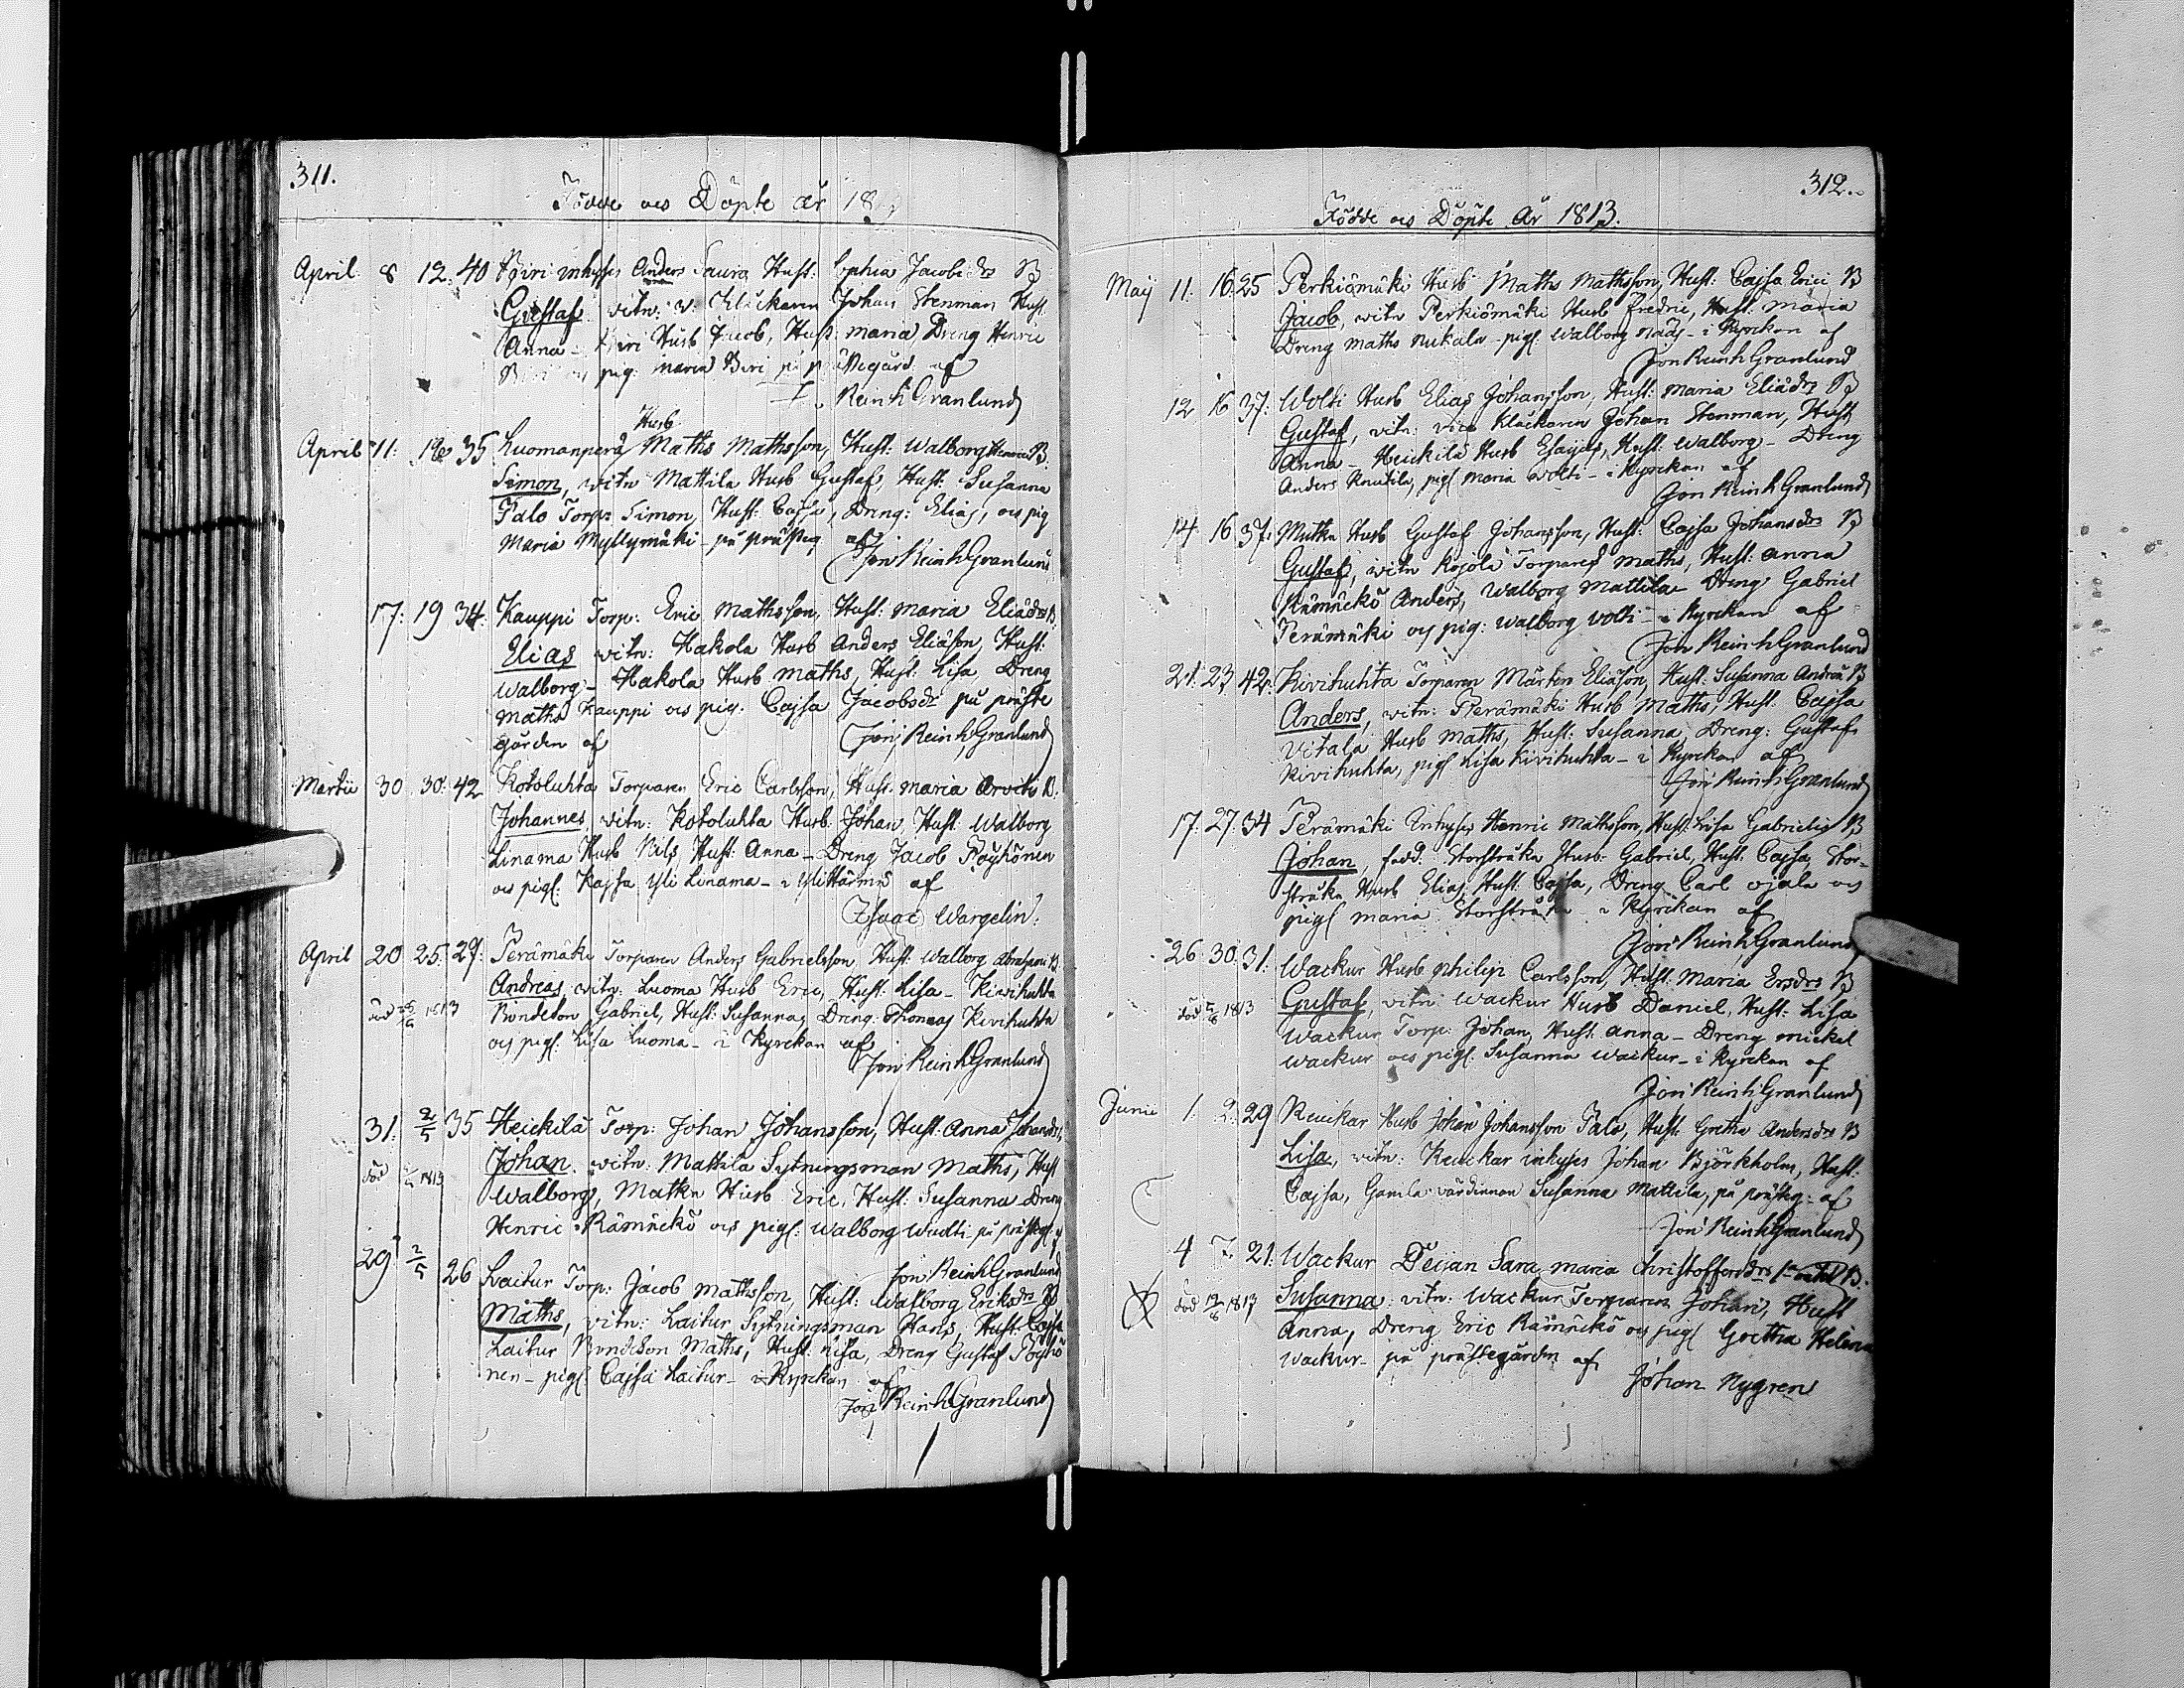 311.
Födde och Döpte år 18
April 8 12. 40 Biri inhyses Anders Saura Hust: Sophia Jacobsdr B
Gustaf witn: v: Klåckaren Johan Stenman Hust
Anna - Biri Husb Jacob, Hust: Maria, Dreng Henric
Biri och pig: Maria Biri på prästegård. af
J. Reinh Granlund
Husb
April 11: 35 Luomanperä Maths Mathsson, Hust: Walborg Henrics B:
Simon, witn Mattila Husb Gustaf, Hust: Susanna
Palo Torp: Simon, Hust: Cajsa, Dreng: Elias, och pig
Maria Myllymäki - på prästeg af
Jon Reinh Granlund
17: 19 34: Kauppi Torp: Eric Mathsson, Hust: Maria Eliädr B:
Elias witn: Hakola Husb Anders Eliäson, Hust:
Walborg - Hakola Husb Maths, Hust: Lisa, Dreng
Maths Kauppi och pig: Cajsa Jacobsdr på präste
gården af Jon Reinh Granlund
Martii 30 30: 42 Kotoluhta Torparen Eric Carlsson, Hust. Maria Arvidi B:
Johannes, witn: Kotoluhta Husb. Johan, Hust Walborg
Linama Husb Nils, Hust: Anna - Dreng Jacob Pöyhönen
och pigl: Kajsa Yli Linama - i Ylihärmä af
Isaac Wargelin:
April 20 25: 29: Perämäki Torparen Anders Gabrielsson Hust: Walborg Abrahams B
Andreas witn: Luoma Husb Eric, Hust: Lisa - Kivihuhta
död 1813 Bondeson Gabriel, Hust: Susanna, Dreng: Thomas Kivihuhta
och pigl: Lisa Luoma - i Kyrckan af
Jon Reinh Granlund
31: 2/5 35 Heickilä Torp: Johan Johansson, Hust: Anna Johansdr
Johan. witn: Mattila Sytningsman Maths, Hust
död 1813 Walborg, Matka Husb Eric, Hust: Susanna - Dreng
Henric Rämäckö och pigl: Walborg Wudti på prästeg: af
Jon Reinh Granlund
29 2/5 26 Laitur Torp: Jacob Mathsson, Hust: Walborg Eriksdr B
Maths, witn: Laitur Sytningsman Hans, Hust: Cajsa
Laitur Bondeson Maths, Hust: Lisa, Dreng Gustaf Pöyhö
nen - pigl Cajsa Laitur - i Kyrckan af
Jon Reinh Granlund
312.
Födde och Döpte År 1813.
Maij 11: 16: 25 Perkiömäki Husb Maths Mathsson, Hust: Cajsa Erici B
Jacob, witn Perkiömäki Husb Fredric, Hust: Maria
Dreng Maths Nukala - pigl. Walborg - i Kyrckan af
Jon Reinh Granlund
12 16 37: Wolti Husb Elias Johansson, Hust: Maria Eliädr B
Gustaf, witn: vice Klåckaren Johan Stenman, Hust
Anna - Heickilä Husb Esaijas, Hust: Walborg - Dreng
Anders Knutila, pigl Maria Wolti - i Kyrckan af
Jon Reinh Granlund
14 16 37: Mutka Husb Gustaf Johansson, Hust: Cajsa Johansdr B
Gustaf, witn Kojola Torparen Maths, Hust: Anna
Rämäckö Anders, Walborg Mattila Dreng Gabriel
Perämäki och pig: Walborg Volti - i Kyrckan af
Jon Reinh Granlund
21: 23 42: Kivihuhta Torparen Mårten Eliäson, Hust: Susanna Andreä B
Anders, witn: Perämäki Husb Maths, Hust Cajsa
Vitala Husb Maths, Hust: Susanna, Dreng: Gustaf
Kivihuhta, pigl Lisa Kivihuhta - i Kyrckan af
Jon Reinh Granlund
17: 27: 34 Perämäki Inhyses Henric Mathsson, Hust: Lisa Gabrielis B
Johan, fadd: Storstråka Husb: Gabriel, Hust: Cajsa, Stor-
stråka Husb Elias, Hust: Cajsa, Dreng Carl Ojala och
pigl Maria Storstråka i Kyrckan af
Jon Reinh Granlund
26 30: 31: Wackur Husb Philip Carlsson, Hust: Maria Ersdr B
död 5/8 1813 Gustaf, witn: Wackur Husb Daniel, Hust: Lisa
Wackur Torp: Johan, Hust: Anna - Dreng Mickel
Wackur och pigl: Susanna Wackur - i Kyrckan af
Jon Reinh Granlund
Junii 1: 2: 29 Keuckar Husb Johan Johansson Palo, Hust: Greta Andersdr B
Lisa, witn: Keuckar inhyses Johan Björkholm, Hust:
Cajsa, Gamla värdinnan Susanna Mattila, på prästeg: af
Jon Reinh Granlund
4 7. 21: Wackur Peijan Sara Maria Christoffersdr B.
död 1813 Susanna: witn: Wackur Torparen Johan, Hust
Anna, Dreng Eric Rämäckö och pigl Gretha Helena
Wackur - på prästegården af
Johan Nygren